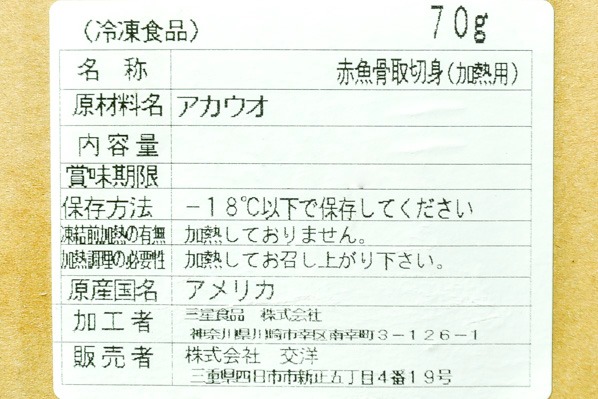 (冷凍食品) 70g
名称 赤魚骨取切身(加熱用)
原材料名 アカウオ
内容量
賞味期限
保存方法 -18℃以下で保存してください
凍結前加熱の有無 加熱しておりません。
加熱調理の必要性 加熱してお召し上がり下さい。
原産国名 アメリカ
加工者 三星食品 株式会社
神奈川県川崎市幸区南幸町3-126-1
販売者 株式会社 交洋
三重県四日市市新正五丁目4番19号